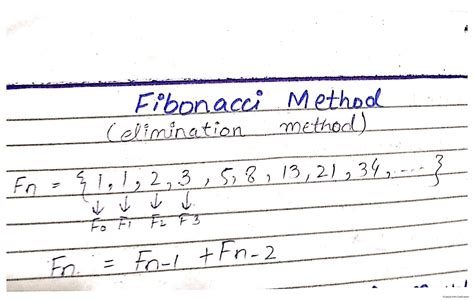 Fibonacci Method
(elimination method)
Fn = {1, 1, 2, 3, 5, 8, 13, 21, 34, ---}
↓ ↓ ↓ ↓
F0 F1 F2 F3
Fn = Fn-1 + Fn-2